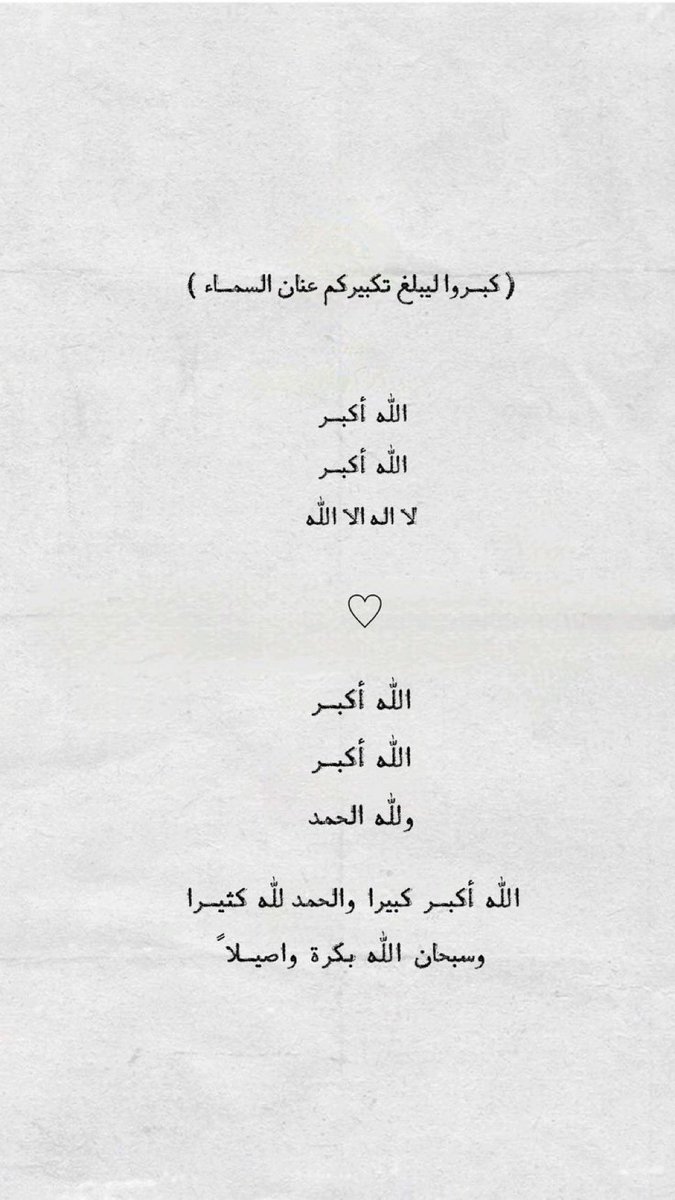 ( كبــروا ليبلغ تكبيركم عنان السمــاء )
الله أكبــر
الله أكبــر
لا اله الا الله
♡
الله أكبــر
الله أكبــر
ولله الحمد
الله أكبــر كبيرا والحمد لله كثيــرا
وسبحان الله بكرة واصيــلاً